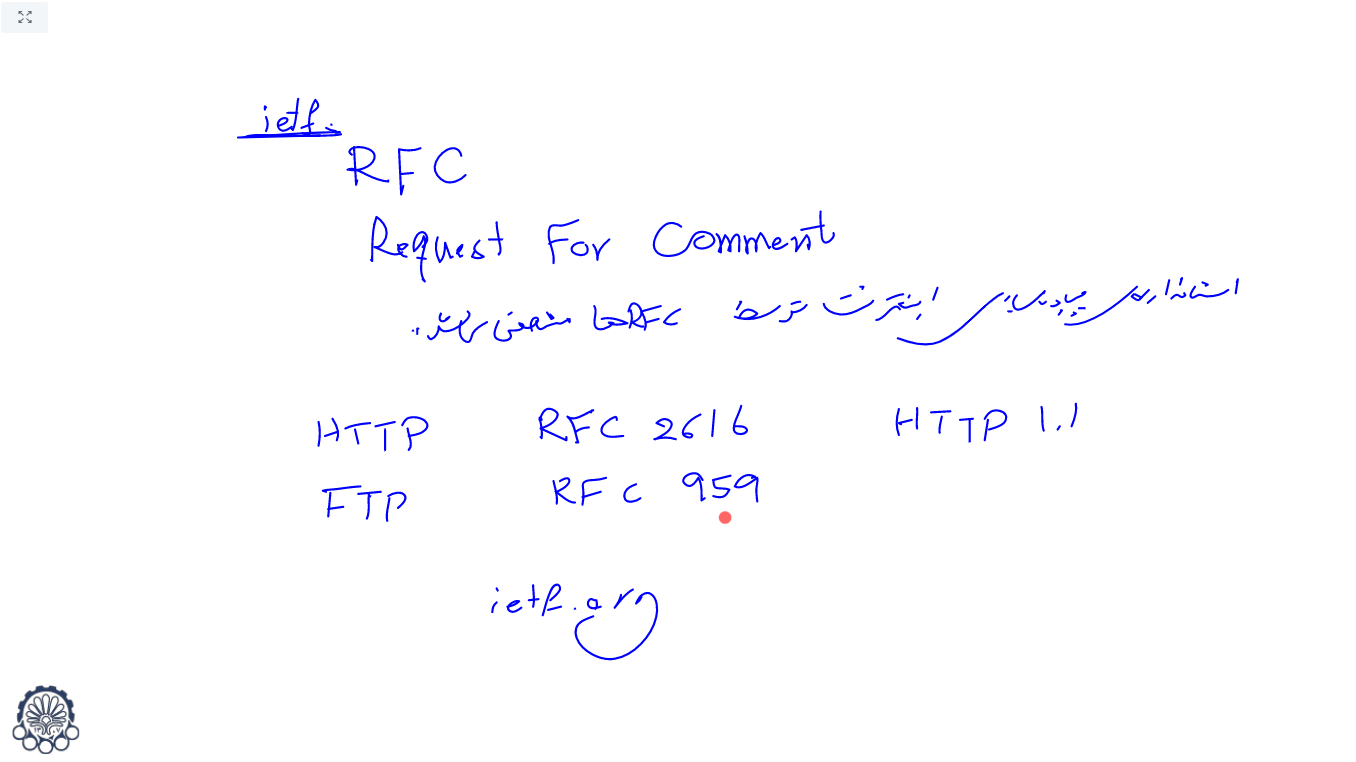 ietf.
RFC
Request For Comment
استانداردهای پیاده‌سازی اینترنت توسط RFCها مشخص می‌شوند.
HTTP RFC 2616 HTTP 1.1
FTP RFC 959
ietf.org